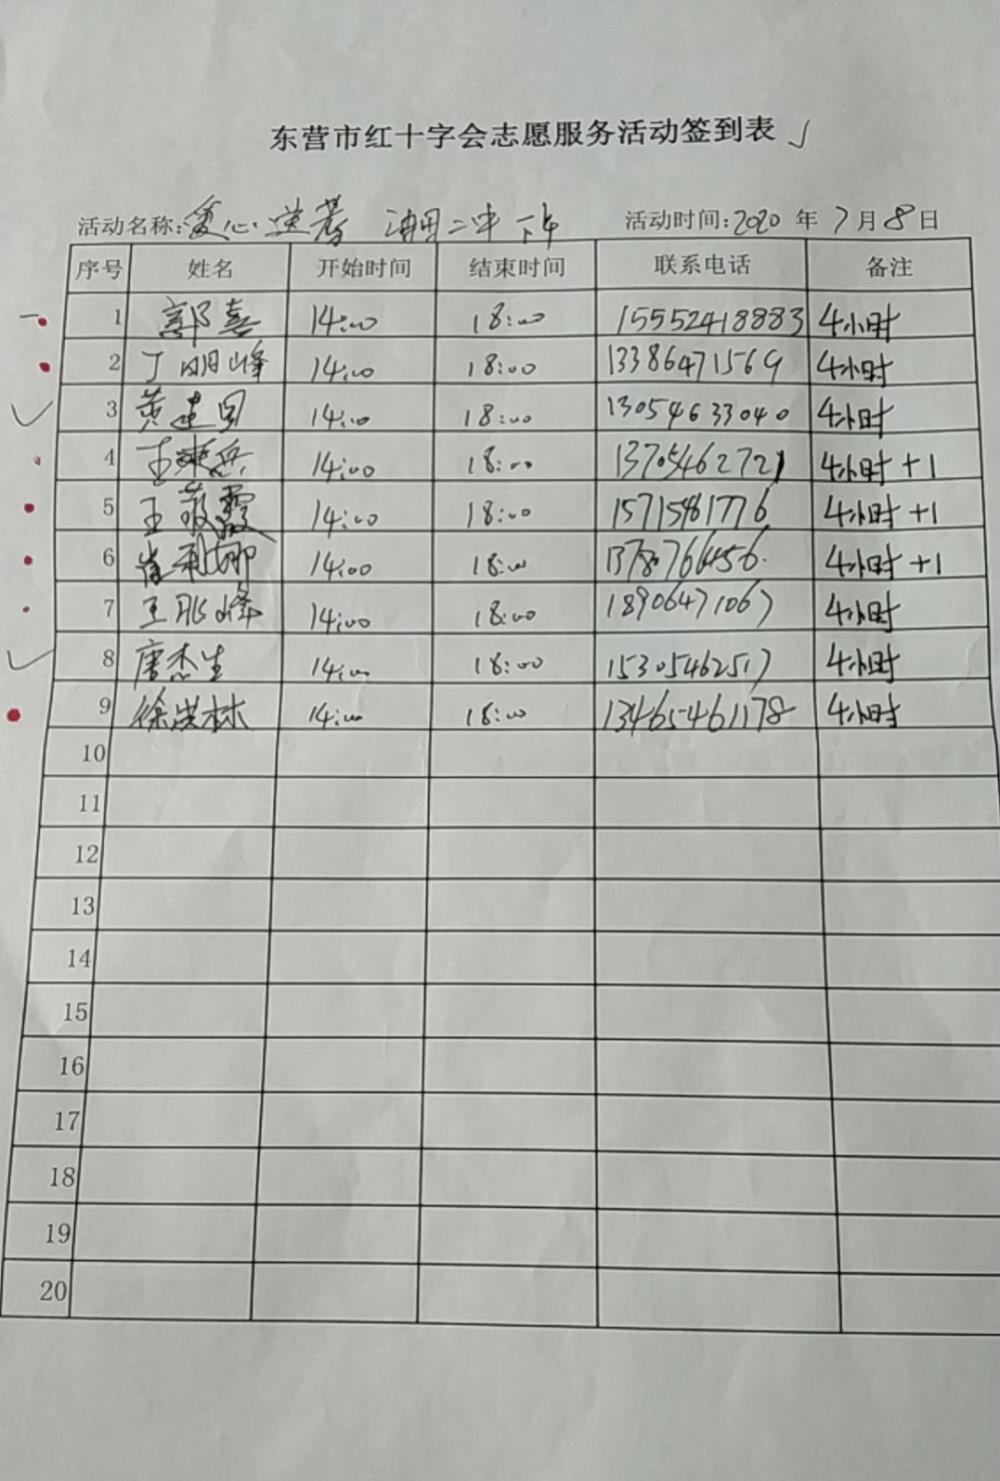 东营市红十字会志愿服务活动签到表
活动名称:爱心送考 油田二中 下午 活动时间:2020年7月8日
序号 姓名 开始时间 结束时间 联系电话 备注
1 郭喜 14:00 18:00 15552418883 4小时
2 丁明峰 14:00 18:00 13386471569 4小时
3 黄建国 14:00 18:00 13054633040 4小时
4 14:00 18:00 13705462721 4小时+1
5 王霞 14:00 18:00 15715461776 4小时+1
6 崔利娜 14:00 18:00 13780766456 4小时+1
7 王峰 14:00 18:00 18906471067 4小时
8 唐杰生 14:00 18:00 15305462517 4小时
9 徐洪林 14:00 18:00 13465461178 4小时
10
11
12
13
14
15
16
17
18
19
20